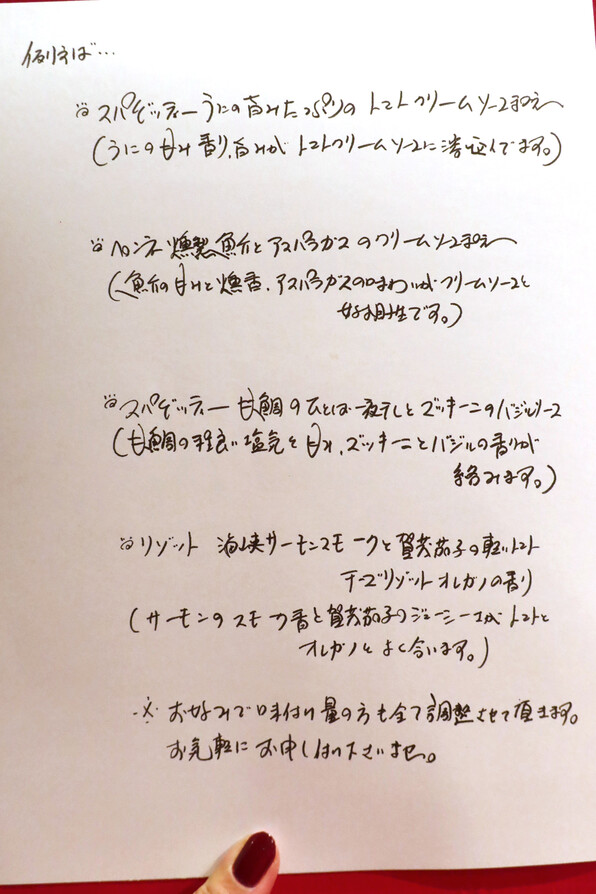 例えば…
スパゲッティー うにの旨みたっぷりの トマトクリームソース和え
(うにの甘み 香り、旨みが トマトクリームソースに溶込んでます。)
ペンネ 燻製魚介と アスパラガス のクリームソース和え
(魚介の甘みと燻香、アスパラガスの味わいがクリームソースと
好相性です。)
スパゲッティー 甘鯛 のひとしお一夜干しとズッキーニのバジルソース
(甘鯛の程良い塩気と甘み、ズッキーニとバジルの香りが
絡みます。)
リゾット 海峡サーモンスモークと賀茂茄子の軽いトマト
チーズリゾット オレガノの香り
(サーモンのスモーク香と賀茂茄子のジューシーさがトマトと
オレガノと よく合います。)
※ お好みで味付け 量の方も全て調整させて頂きます。
お気軽に お申し付け下さいませ。